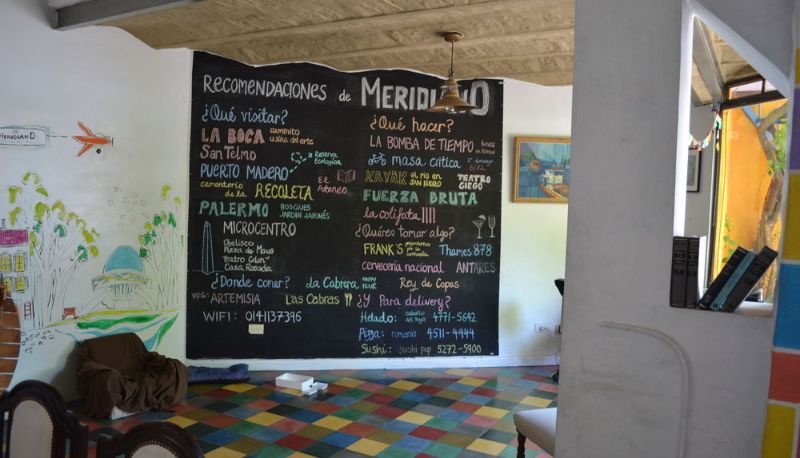 MERIDIANO
RECOMENDACIONES de MERIDIANO
¿Qué visitar?
LA BOCA caminito usina del arte
San Telmo
PUERTO MADERO Reserva Ecológica
cementerio de la RECOLETA El Ateneo
PALERMO BOSQUES JARDIN JAPONÉS
MICROCENTRO
Obelisco
Plaza de Mayo
Teatro Colon
Casa Rosada
¿Donde comer? La Cabrera HAPPY HOUR
VEG: ARTEMISIA Las Cabras
WIFI: 0141137376
¿Qué hacer?
LA BOMBA DE TIEMPO
masa critica
KAYAK el rio en SAN ISIDRO TEATRO CIEGO
FUERZA BRUTA
la colifata
¿Queres tomar algo?
FRANK'S Thames 878
cerveceria nacional ANTARES
Rey de Copas
¿Y Para delivery?
Helado: 4771-5642
Pizza: romario 4511-4444
Sushi: sushi pop 5272-5900